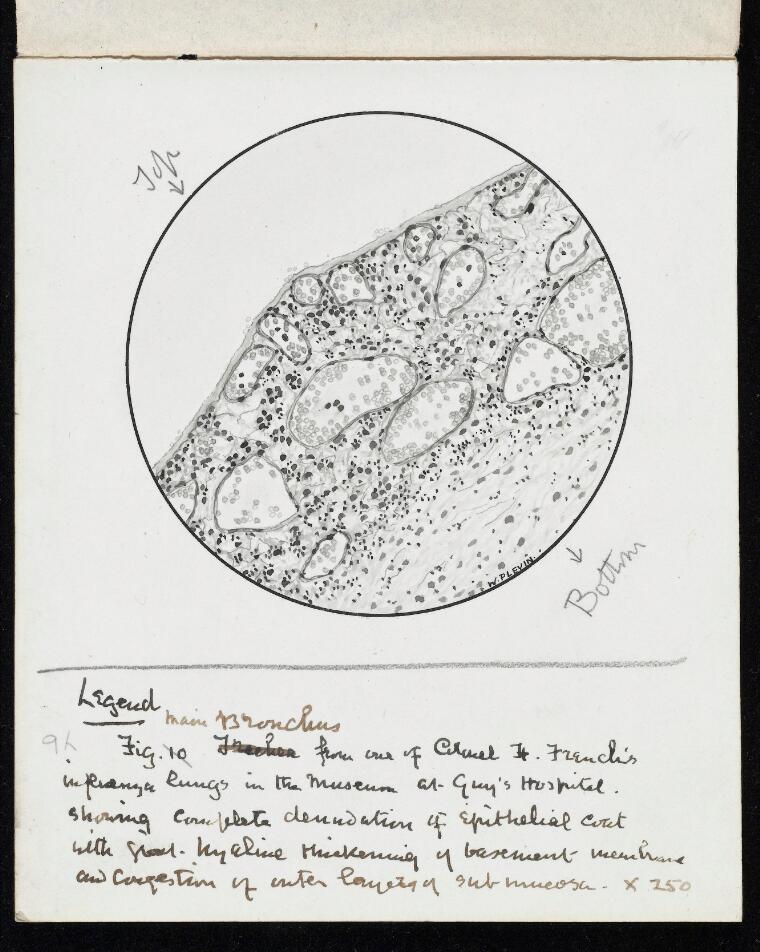 Top
W. PLEVIN.
Bottom
Legend
main Bronchus
Fig. 10 Trachea from one of Colonel H. French's
influenza lungs in the Museum at Guy's Hospital.
showing complete denudation of Epithelial coat
with great hyaline thickening of basement membrane
and congestion of outer layers of submucosa. X 250